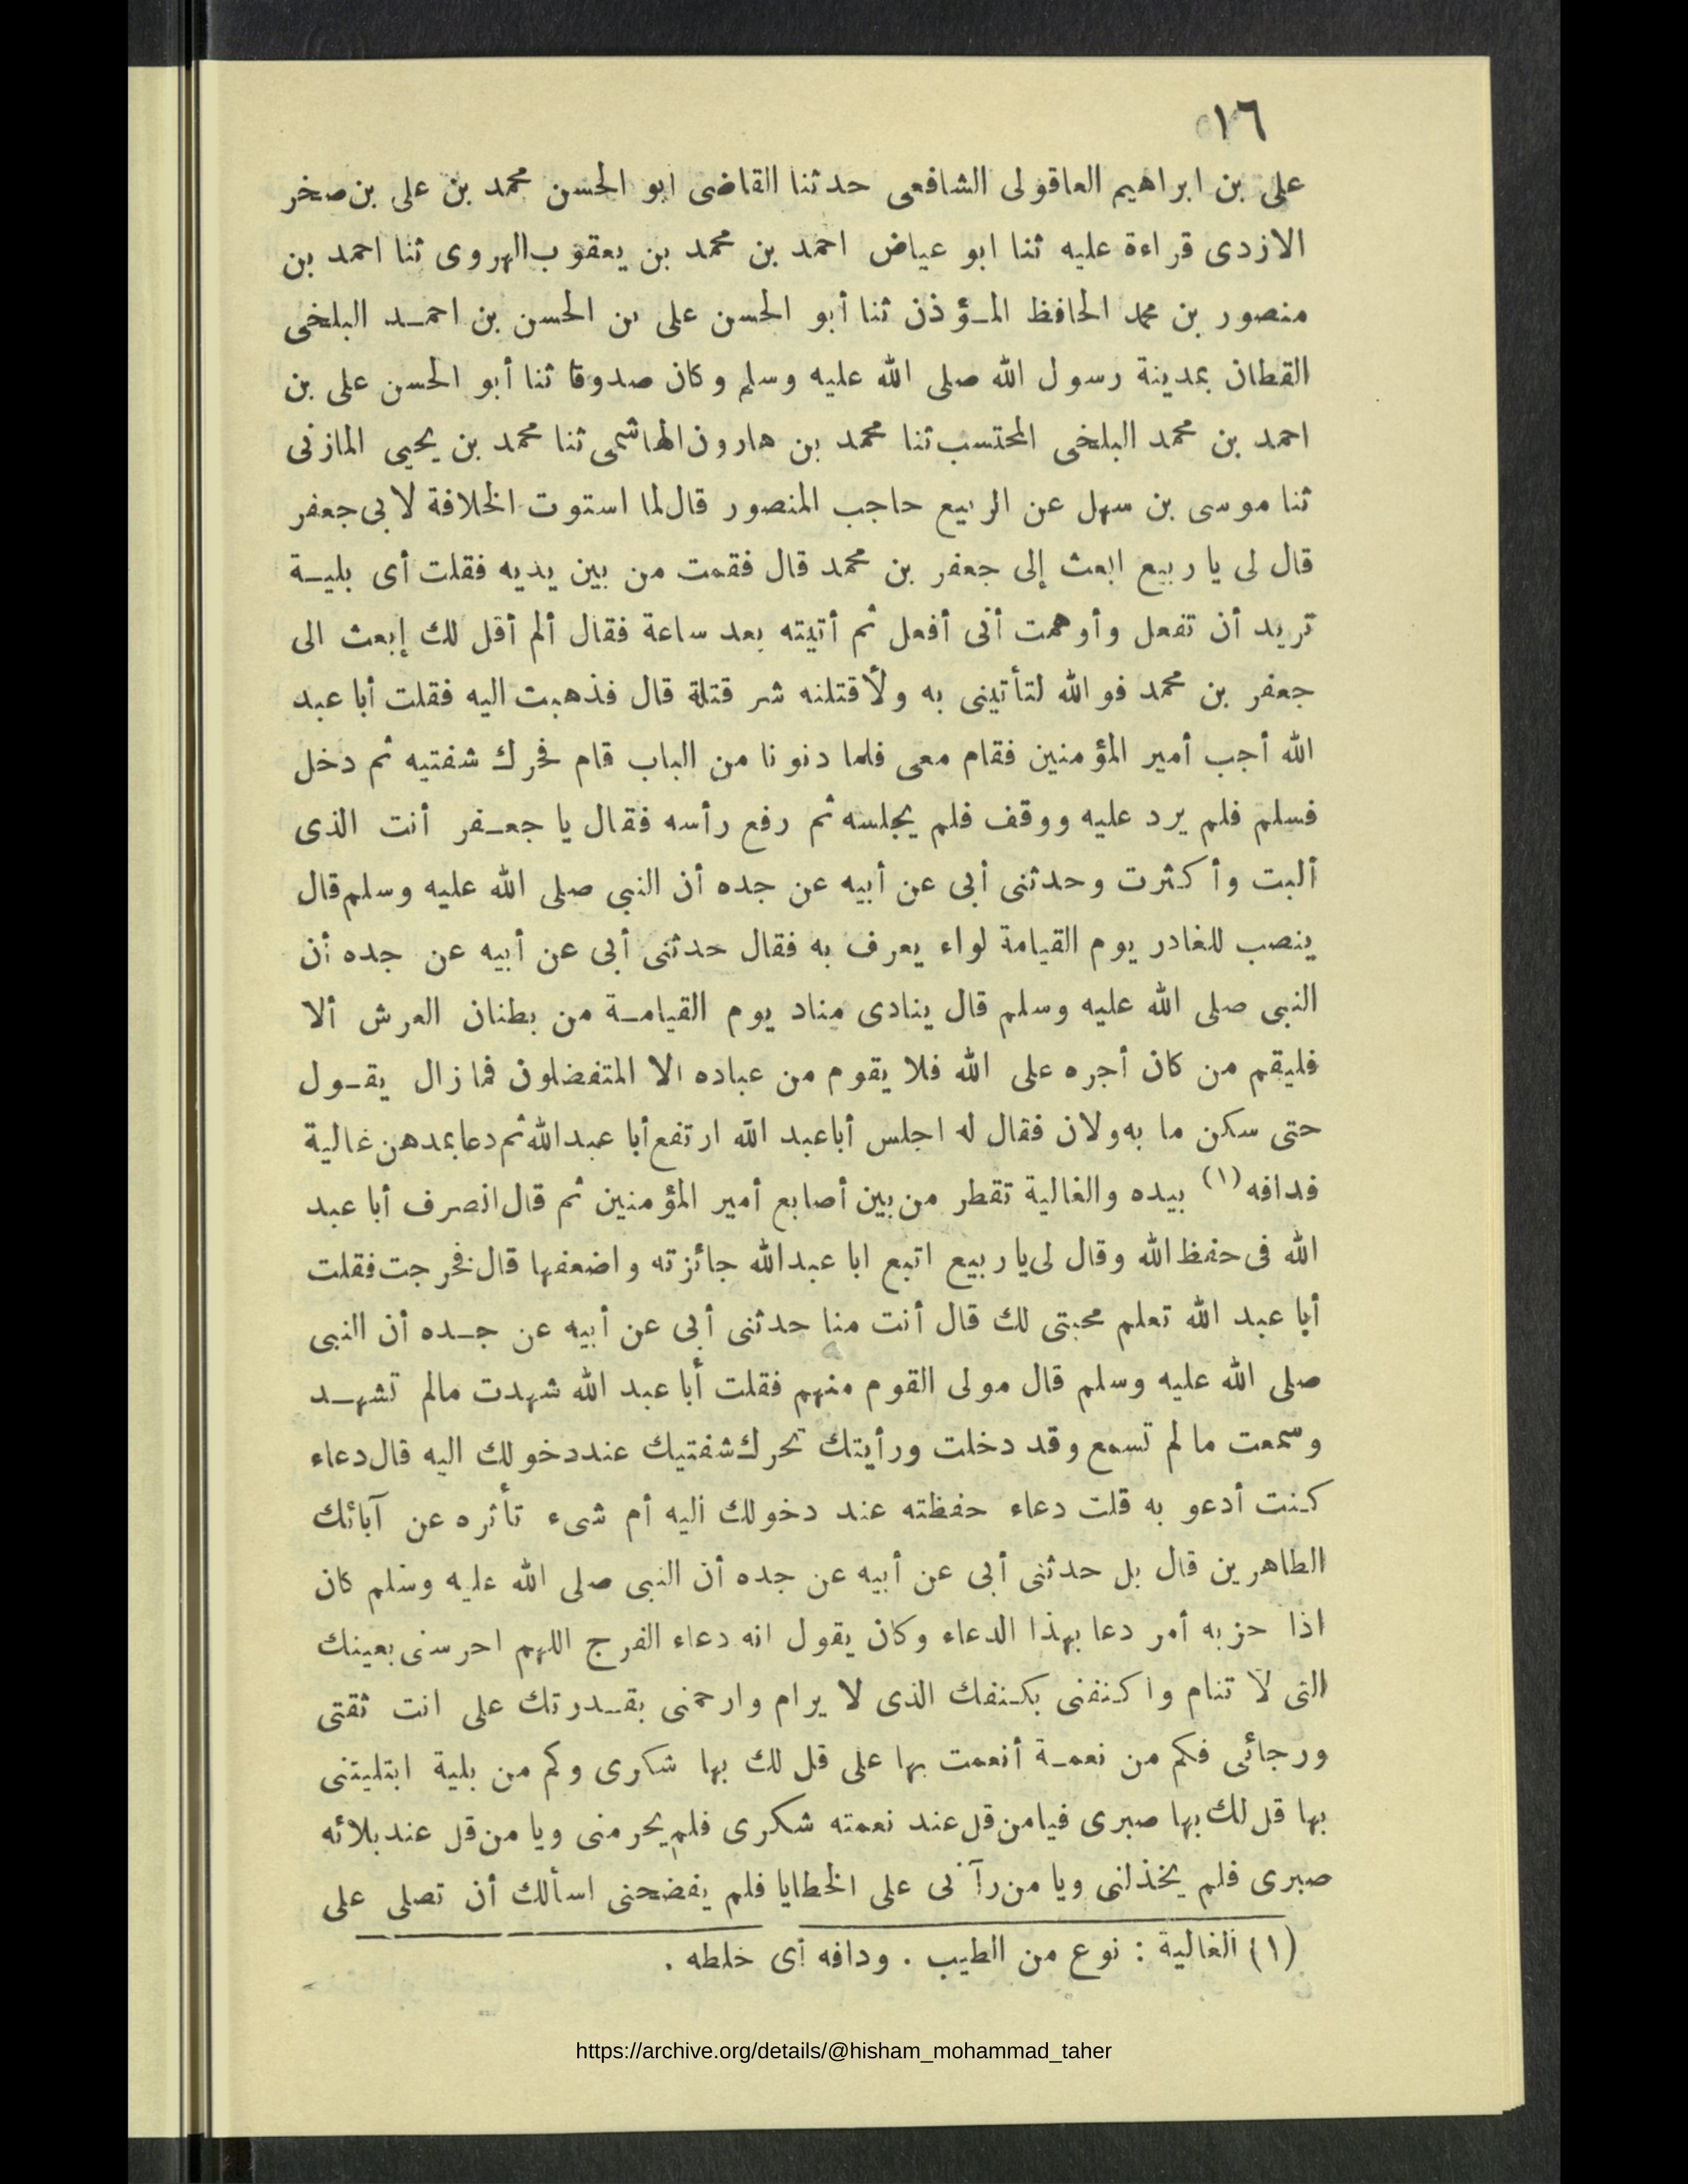 ١٦
على بن ابراهيم العاقولى الشافعى حدثنا القاضى ابو الحسن محمد بن على بن صخر
الازدى قراءة عليه ثنا ابو عياض احمد بن محمد بن يعقوب الهروى ثنا احمد بن
منصور بن محمد الحافظ المؤذن ثنا أبو الحسن على بن الحسن بن احمد البلخى
القطان بمدينة رسول الله صلى الله عليه وسلم وكان صدوقا ثنا أبو الحسن على بن
احمد بن محمد البلخى المحتسب ثنا محمد بن هارون الهاشمى ثنا محمد بن يحيى المازنى
ثنا موسى بن سهل عن الربيع حاجب المنصور قال لما استوت الخلافة لابى جعفر
قال لى يا ربيع ابعث إلى جعفر بن محمد قال فقمت من بين يديه فقلت أى بلية
تريد أن تفعل وأوهمت أنى أفعل ثم أتيته بعد ساعة فقال ألم أقل لك إبعث الى
جعفر بن محمد فوالله لتأتينى به ولأقتلنه شر قتلة قال فذهبت اليه فقلت أبا عبد
الله أجب أمير المؤمنين فقام معى فلما دنونا من الباب قام فحرك شفتيه ثم دخل
فسلم فلم يرد عليه ووقف فلم يجلسه ثم رفع رأسه فقال يا جعفر أنت الذى
ألبت وأكثرت وحدثنى أبى عن أبيه عن جده أن النبى صلى الله عليه وسلم قال
ينصب للغادر يوم القيامة لواء يعرف به فقال حدثنى أبى عن أبيه عن جده أن
النبى صلى الله عليه وسلم قال ينادى مناد يوم القيامة من بطنان العرش ألا
فليقم من كان أجره على الله فلا يقوم من عباده الا المتفضلون فما زال يقول
حتى سكن ما به ولان فقال له اجلس أبا عبد الله ارتفع أبا عبد الله ثم دعا بمدهن غالية
فدافه (١) بيده والغالية تقطر من بين أصابع أمير المؤمنين ثم قال انصرف أبا عبد
الله فى حفظ الله وقال لى يا ربيع اتبع ابا عبد الله جائزته واضعفها قال فخرجت فقلت
أبا عبد الله تعلم محبتى لك قال أنت منا حدثنى أبى عن أبيه عن جده أن النبى
صلى الله عليه وسلم قال مولى القوم منهم فقلت أبا عبد الله شهدت مالم تشهد
وسمعت ما لم تسمع وقد دخلت ورأيتك تحرك شفتيك عند دخولك اليه قال دعاء
كنت أدعو به قلت دعاء حفظته عند دخولك اليه أم شىء تأثره عن آبائك
الطاهرين قال بل حدثنى أبى عن أبيه عن جده أن النبى صلى الله عليه وسلم كان
اذا حزبه أمر دعا بهذا الدعاء وكان يقول انه دعاء الفرج اللهم احرسنى بعينك
التى لا تنام واكنفنى بكنفك الذى لا يرام وارحمنى بقدرتك على انت ثقتى
ورجائى فكم من نعمة أنعمت بها على قل لك بها شكرى وكم من بلية ابتليتنى
بها قل لك بها صبرى فيا من قل عند نعمته شكرى فلم يحرمنى ويا من قل عند بلائه
صبرى فلم يخذلنى ويا من رآنى على الخطايا فلم يفضحنى اسألك أن تصلى على
(١) الغالية : نوع من الطيب . ودافه أى خلطه .
https://archive.org/details/@hisham_mohammad_taher